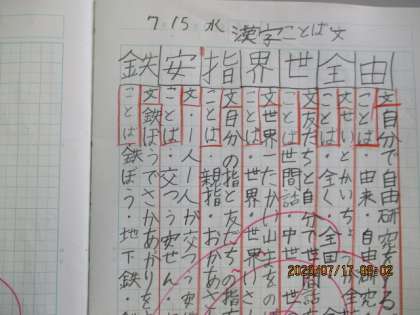 7.15 水 漢字ことば文
由 全 世 界 指 安 鉄
ことば・由来・自由研究・
文自分で自由研究をする
ことば・全く・全国
ことば世間話 中世 世
文友だちと自分で世間話
ことば・世界・世界
文世界一たかい山
ことば 親指・おかあさ
文自分の指と友だちの指
ことば・交つう安ぜん・
文・一人一人が交つう安
ことば鉄ぼう・地下鉄・
文鉄ぼうでさかあがりを
2020/07/17 09:02